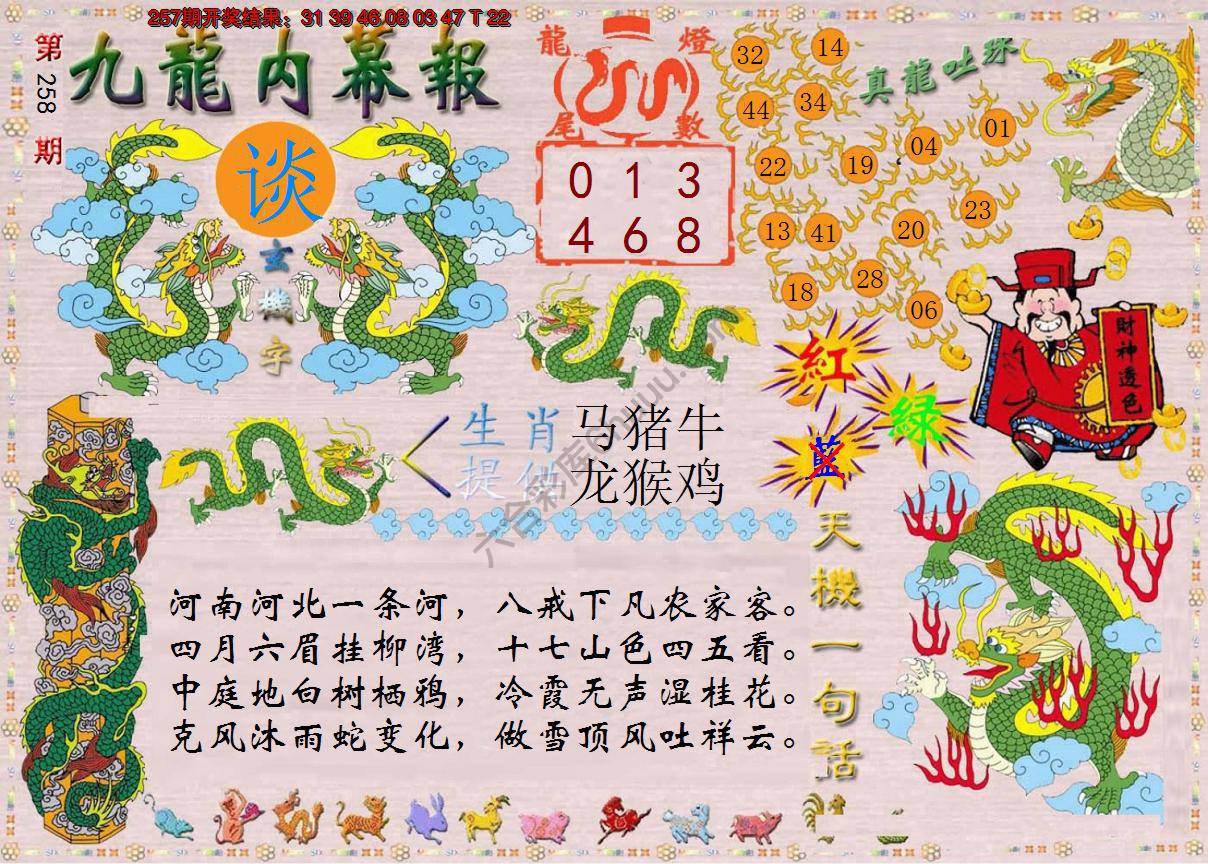 257期开奖结果：31 39 46 08 03 47 T 22
第
258
期
九龍内幕報
谈
玄
機
字
龍
燈
尾
數
0 1 3
4 6 8
真龍吐珠
32
14
44
34
22
19
04
01
13
41
20
23
18
28
06
財神透色
紅
綠
藍
生肖
提供
马猪牛
龙猴鸡
天機一句話
河南河北一条河，八戒下凡农家客。
四月六眉挂柳湾，十七山色四五看。
中庭地白树栖鸦，冷霞无声湿桂花。
克风沐雨蛇变化，做雪顶风吐祥云。